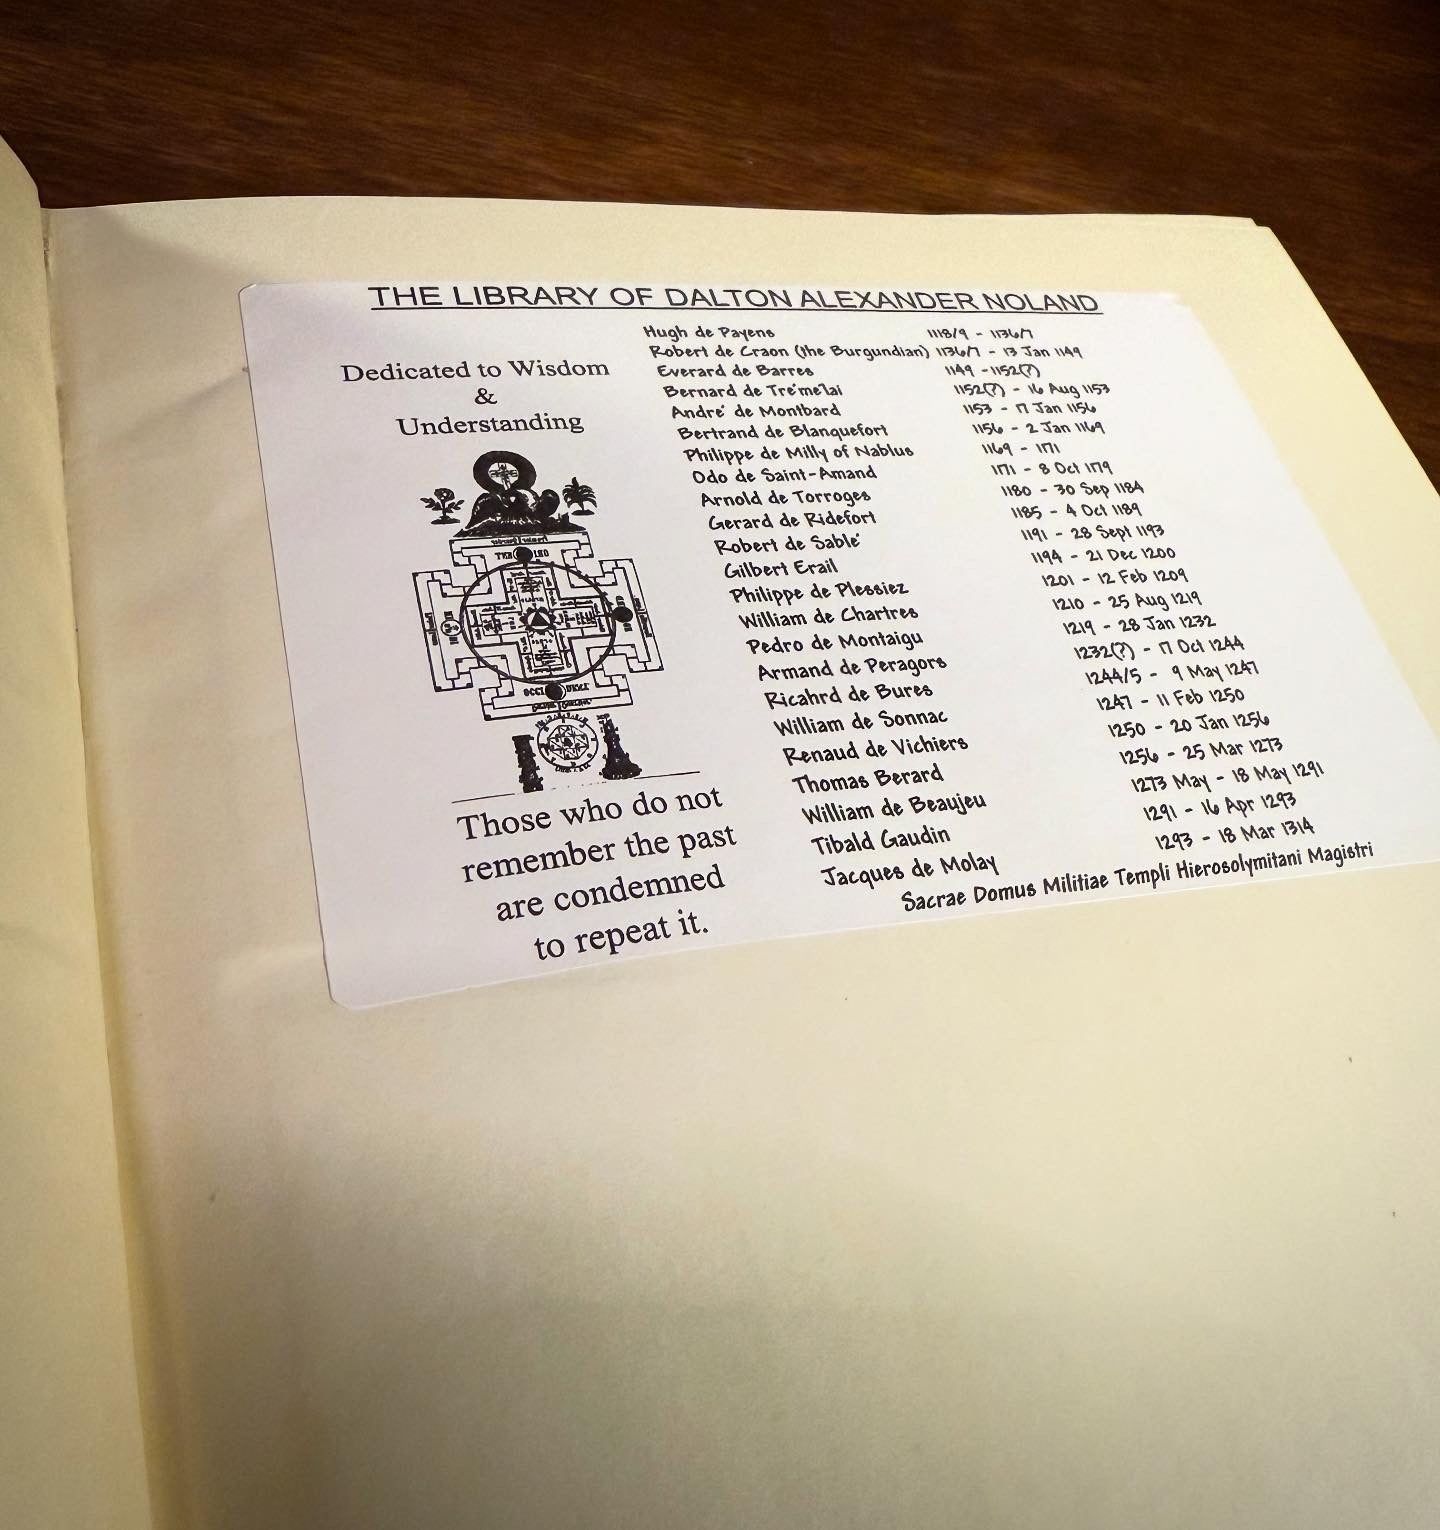 THE LIBRARY OF DALTON ALEXANDER NOLAND
Dedicated to Wisdom
&
Understanding
Those who do not
remember the past
are condemned
to repeat it.
Hugh de Payens 1118/9 - 1136/7
Robert de Craon (the Burgundian) 1136/7 - 13 Jan 1149
Everard de Barres 1149 -1152(?)
Bernard de Tré'me'lai 1152(?) - 16 Aug 1153
André de Montbard 1153 - 17 Jan 1156
Bertrand de Blanquefort 1156 - 2 Jan 1169
Philippe de Milly of Nablus 1169 - 1171
Odo de Saint-Amand 1171 - 8 Oct 1179
Arnold de Torroges 1180 - 30 Sep 1184
Gerard de Ridefort 1185 - 4 Oct 1189
Robert de Sablé 1191 - 28 Sept 1193
Gilbert Erail 1194 - 21 Dec 1200
Philippe de Plessiez 1201 - 12 Feb 1209
William de Chartres 1210 - 25 Aug 1219
Pedro de Montaigu 1219 - 28 Jan 1232
Armand de Peragors 1232(?) - 17 Oct 1244
Ricahrd de Bures 1244/5 - 9 May 1247
William de Sonnac 1247 - 11 Feb 1250
Renaud de Vichiers 1250 - 20 Jan 1256
Thomas Berard 1256 - 25 Mar 1273
William de Beaujeu 1273 May - 18 May 1291
Tibald Gaudin 1291 - 16 Apr 1293
Jacques de Molay 1293 - 18 Mar 1314
Sacrae Domus Militiae Templi Hierosolymitani Magistri